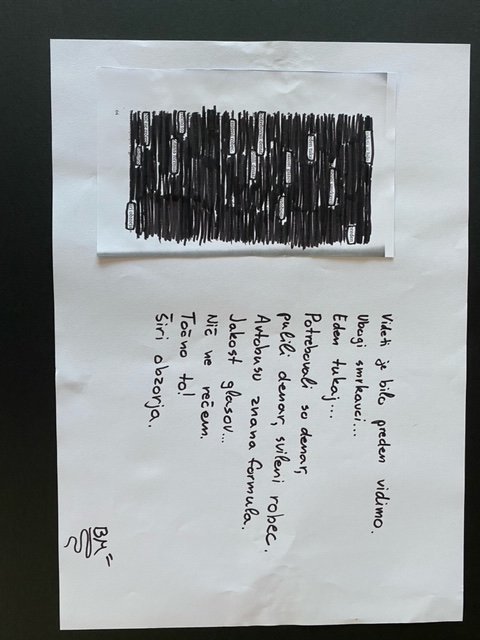 Videti je bilo preden vidimo.
Ubogi smrkavci...
Eden tukaj...
Potrebovali so denar,
pulili denar, svileni robec.
Avtobusu znana formula.
Jakost glasov...
Nič ne rečem.
Točno to!
Širi obzorja.
BM=